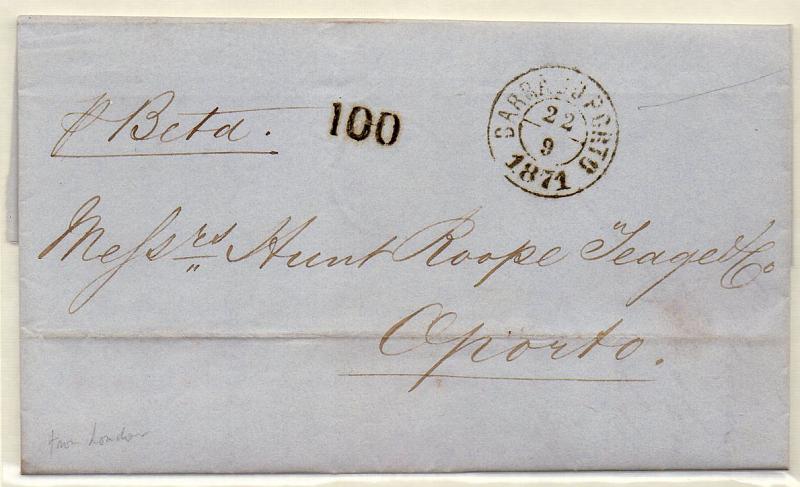 p Beta.
100
BARRA DO PORTO
22
9
1871
Messrs Hunt Roope Teage & Co
Oporto.
from London